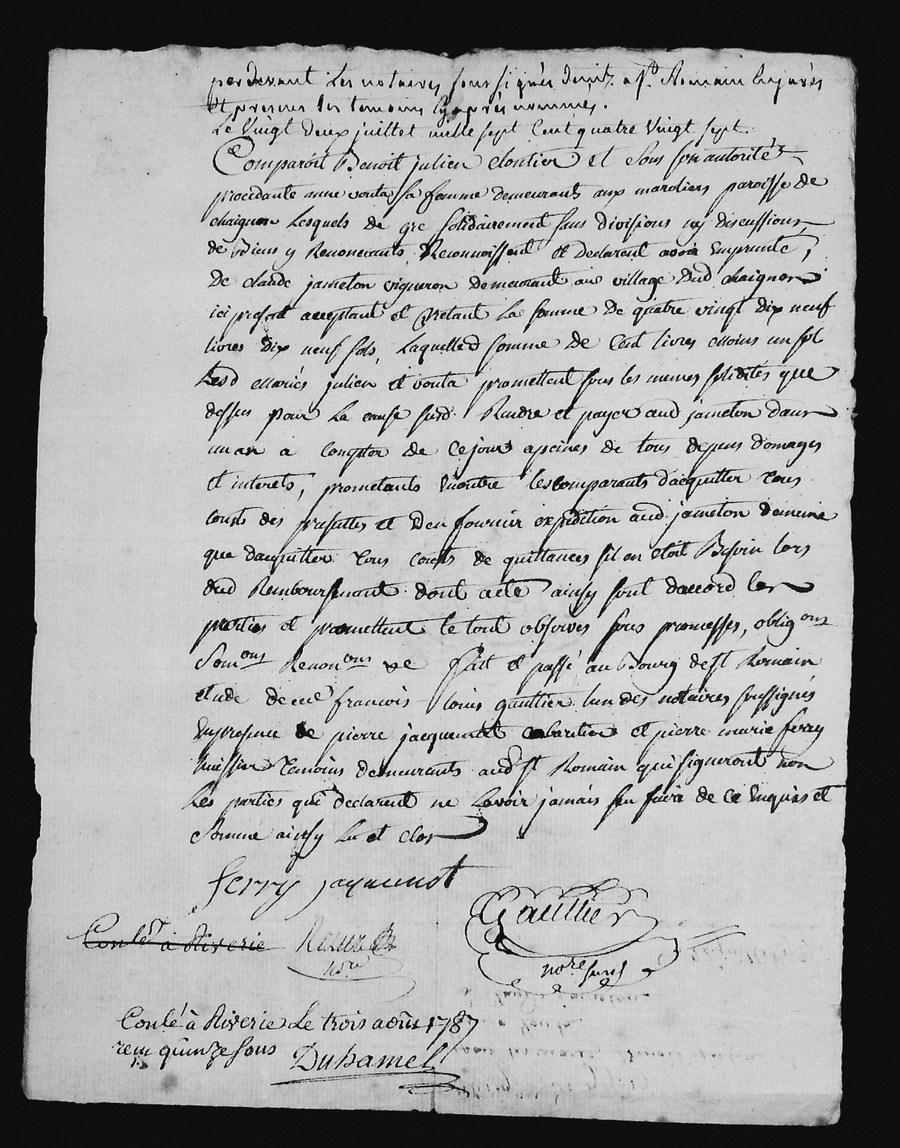 pardevant Les notaires soussignés à St. Romain enjarés
Et presens les temoins cy après nommés.
Le Vingt deux juillet mille sept Cent quatre Vingt sept.
Comparoit Benoit julien cloutier et Sous son autorité
procedante anne vouta sa femme demeurant aux maroliers paroisse de
chaignon Lesquels de gré solidairement sans divisions ny discussions
de Biens y Renoncants Reconnoissent et declarent avoir Emprunté,
De claude jameton vigneron demeurant au village Dud chaignon
ici present acceptant et pretant La somme de quatre vingt dix neuf
livres dix neuf sols, Laquelled somme de Cent livres moins un sol
Lesd mariés julien et vouta promettent sous les memes solidités que
dessus pour La cause susd. Rendre et payer aud jameton dans
un an a Compter de Ce jour apeines de tous depens domages
et interets, promettants Enoutre les comparants dacquitter Tous
couts des presentes et den fournir expedition aud jameton dememe
que dacquitter Tous couts de quittances sil en etoit Besoin lors
dud Remboursement dont acte ainsy sont daccord les
parties et promettent le tout observer sous promesses, obligons
Somons Renonons &e fait et passé au Bourg de St Romain
etude de me francois louis gaultier lun des notaires soussignés
Enpresence de pierre jacquemot cabaretier et pierre marie ferry
huissier Temoins demeurants aud St Romain qui signeront non
Les parties qui declarent ne Lavoir jamais su faire de Ce Enquis et
Sommé ainsy Lu et clos
ferry jaquemot
Gaultier
Conlé à Riverie
nore
nore
Conlé à Riverie Le trois août 1787
reçu quinze sous
Duhamel